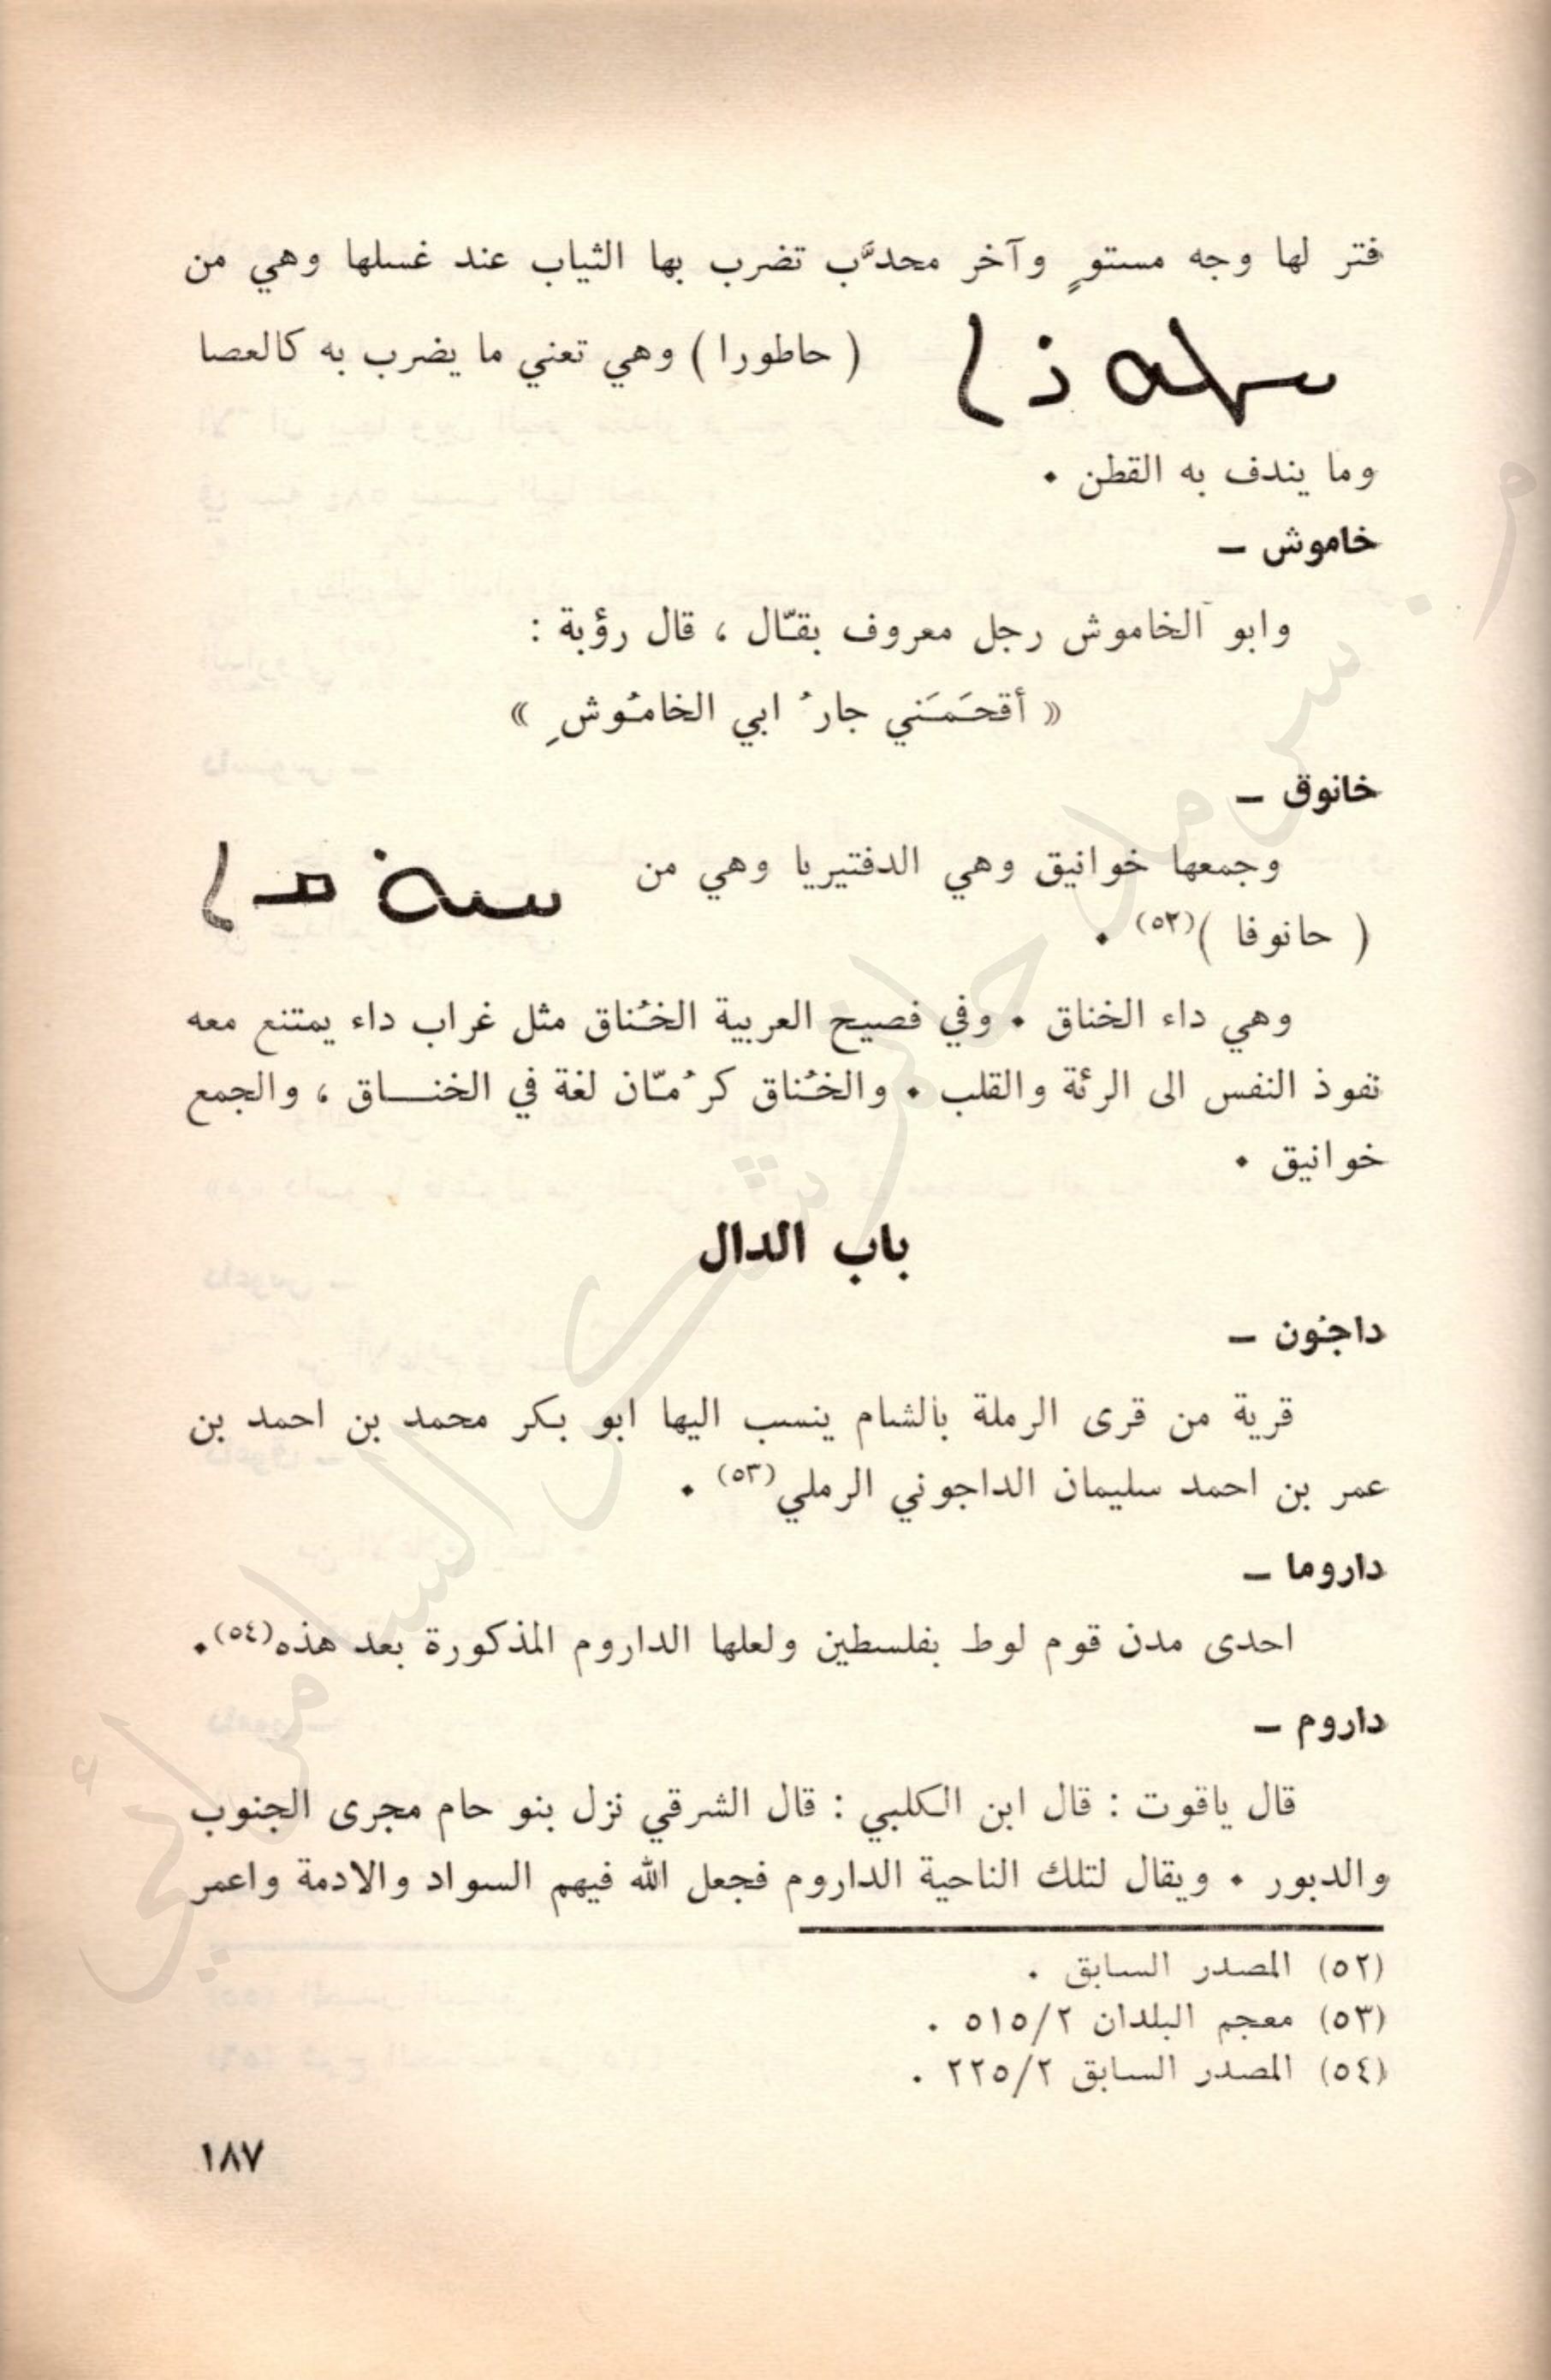 فتر لها وجه مستوٍ وآخر محدَّب تضرب بها الثياب عند غسلها وهي من
ܚܛܘܪܐ ( حاطورا ) وهي تعني ما يضرب به كالعصا
وما يندف به القطن .
خاموش –
وابو الخاموش رجل معروف بقّال ، قال رؤبة :
« أقحَمَني جارُ ابي الخامُوشِ »
خانوق –
وجمعها خوانيق وهي الدفتيريا وهي من ܚܢܘܩܐ
( حانوفا )(٥٢) .
وهي داء الخناق . وفي فصيح العربية الخُناق مثل غراب داء يمتنع معه
نفوذ النفس الى الرئة والقلب . والخُناق كرُمّان لغة في الخنـــاق ، والجمع
خوانيق .
باب الدال
داجون –
قرية من قرى الرملة بالشام ينسب اليها ابو بكر محمد بن احمد بن
عمر بن احمد سليمان الداجوني الرملي(٥٣) .
داروما –
احدى مدن قوم لوط بفلسطين ولعلها الداروم المذكورة بعد هذه(٥٤).
داروم –
قال ياقوت : قال ابن الكلبي : قال الشرقي نزل بنو حام مجرى الجنوب
والدبور . ويقال لتلك الناحية الداروم فجعل الله فيهم السواد والادمة واعمر
(٥٢) المصدر السابق .
(٥٣) معجم البلدان ٥١٥/٢ .
(٥٤) المصدر السابق ٢٢٥/٢ .
١٨٧